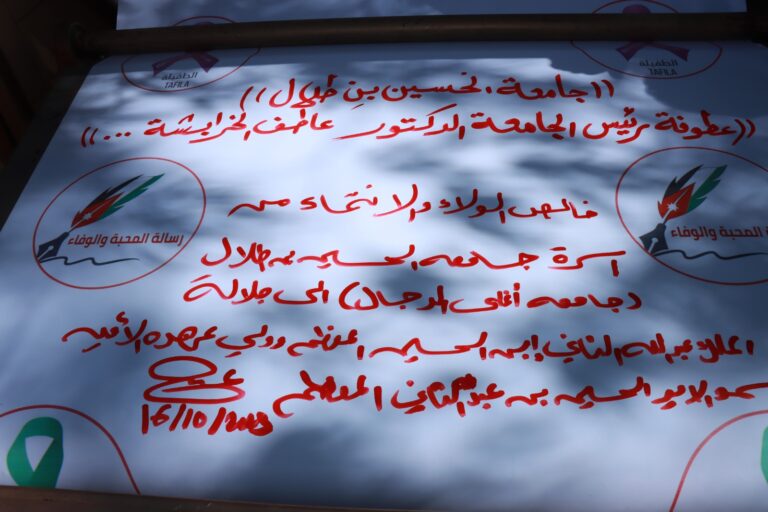 الطفيلة
TAFILA
الطفيلة
TAFILA
((جامعة الحسين بن طلال))
((عطوفة رئيس الجامعة الدكتور عاطف الخرابشة ...))
رسالة المحبة والوفاء
رسالة المحبة والوفاء
خالص الولاء والانتماء من
اسرة جامعه الحسين بن طلال
(جامعه أغلى الرجال) الى جلالة
الملك عبدالله الثاني إبن الحسين المعظم وولي عهده الأمين
سمو الامير الحسين بن عبدالله الثاني المعظم
16/10/2023